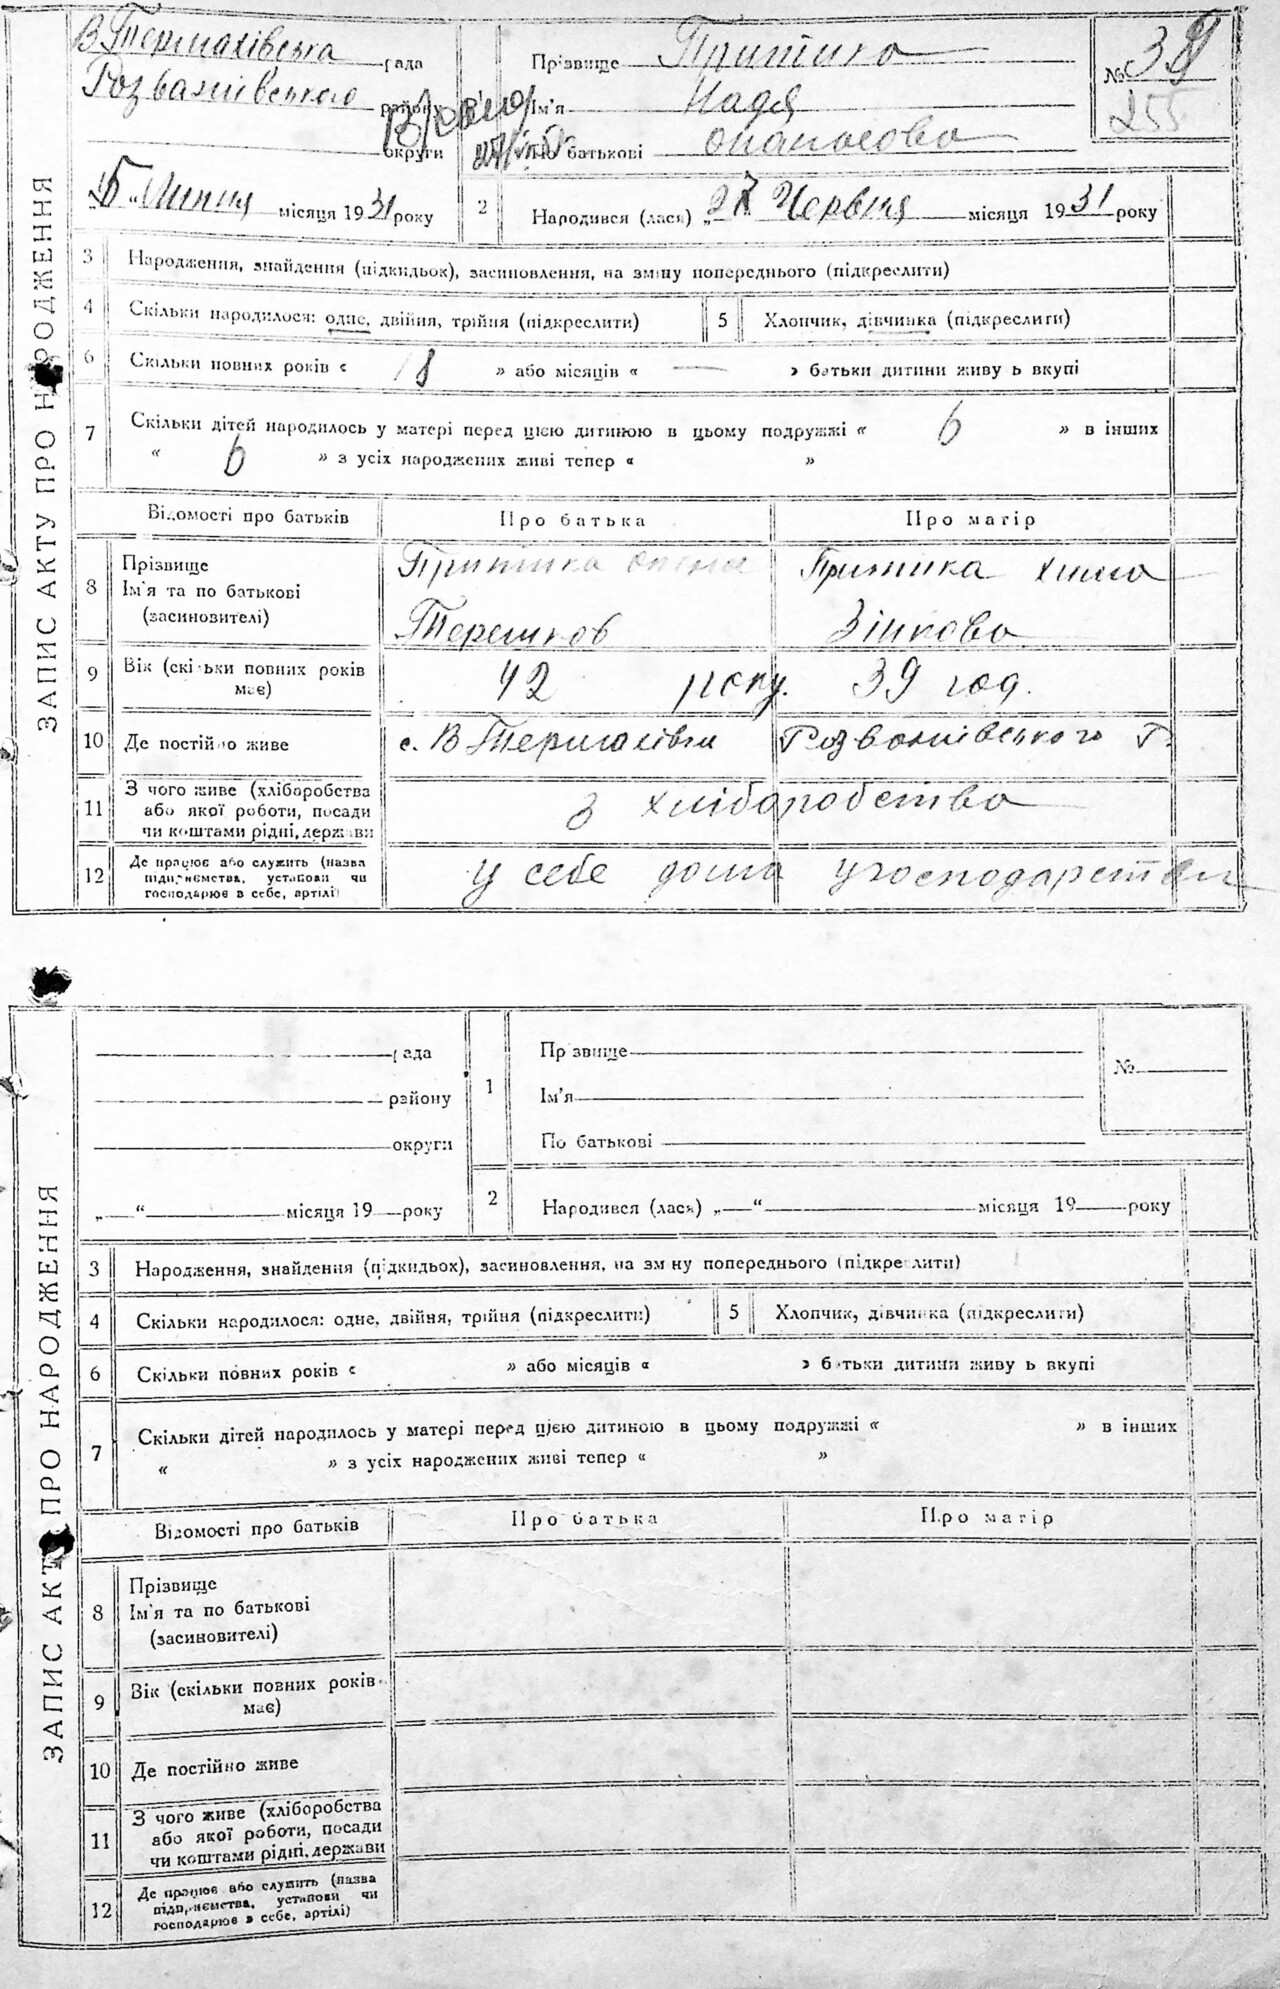 ЗАПИС АКТУ ПРО НАРОДЖЕННЯ
В Термахівська рада
Розважівського району
округи
5 " Липня місяця 1931 року
Прізвище Притика
Ім'я Надя
По батькові Опанасова
№ 39
255
2 Народився (лася) „27 Червня місяця 1931 року
3 Народження, знайдення (підкидьок), засиновлення, на зміну попереднього (підкреслити)
4 Скільки народилося: одне, двійня, трійня (підкреслити) 5 Хлопчик, дівчинка (підкреслити)
6 Скільки повних років « 18 » або місяців « — » батьки дитини живуть вкупі
7 Скільки дітей народилось у матері перед цією дитиною в цьому подружжі « 6 » в інших
« 6 » з усіх народжених живі тепер « »
Відомості про батьків Про батька Про матір
8 Прізвище
Ім'я та по батькові
(засиновителі)
Притика
Терешков
Притика Хима
Зінкова
9 Вік (скільки повних років має) 42 року. 39 год.
10 Де постійно живе с. В Термахівка Розважівського Р.
11 З чого живе (хліборобства
або якої роботи, посади
чи коштами рідні, держави
З хліборобства
12 Де працює або служить (назва
підприємства, установи чи
господарює в себе, артілі)
у себе дома у господарстві
ЗАПИС АКТУ ПРО НАРОДЖЕННЯ
рада
району
округи
„—“ місяця 19 року
1 Прізвище
Ім'я
По батькові
№
2 Народився (лася) „—“ місяця 19 року
3 Народження, знайдення (підкидьох), засиновлення, на зміну попереднього (підкреслити)
4 Скільки народилося: одне, двійня, трійня (підкреслити) 5 Хлопчик, дівчинка (підкреслити)
6 Скільки повних років « » або місяців « » батьки дитини живуть вкупі
7 Скільки дітей народилось у матері перед цією дитиною в цьому подружжі « » в інших
« » з усіх народжених живі тепер « »
Відомості про батьків Про батька Про матір
8 Прізвище
Ім'я та по батькові
(засиновителі)
9 Вік (скільки повних років
має)
10 Де постійно живе
11 З чого живе (хліборобства
або якої роботи, посади
чи коштами рідні, держави
12 Де працює або служить (назва
підприємства, установи чи
господарює в себе, артілі)